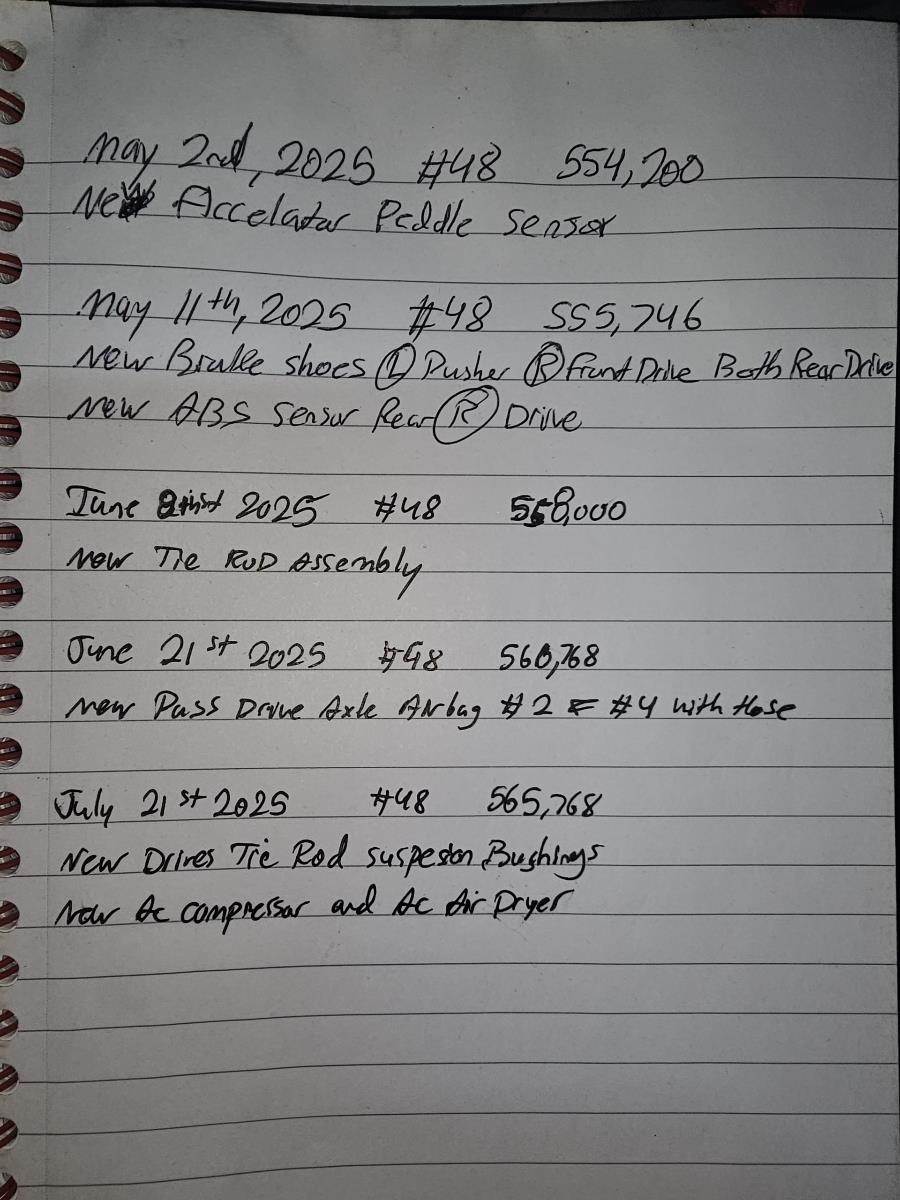 May 2nd, 2025 #48 554,200
New Accelatar Peddle Sensor
May 11th, 2025 #48 555,746
New Brake shoes (L) Pusher (R) Front Drive Both Rear Drive
New ABS Sensor Rear (R) Drive
June 2025 #48 558,000
New Tie ROD Assembly
June 21st 2025 #48 560,768
New Pass Drive Axle Airbag #2 #4 with Hose
July 21st 2025 #48 565,768
New Drives Tie Rod suspeston Bushings
New Ac compressor and Ac Air Dryer